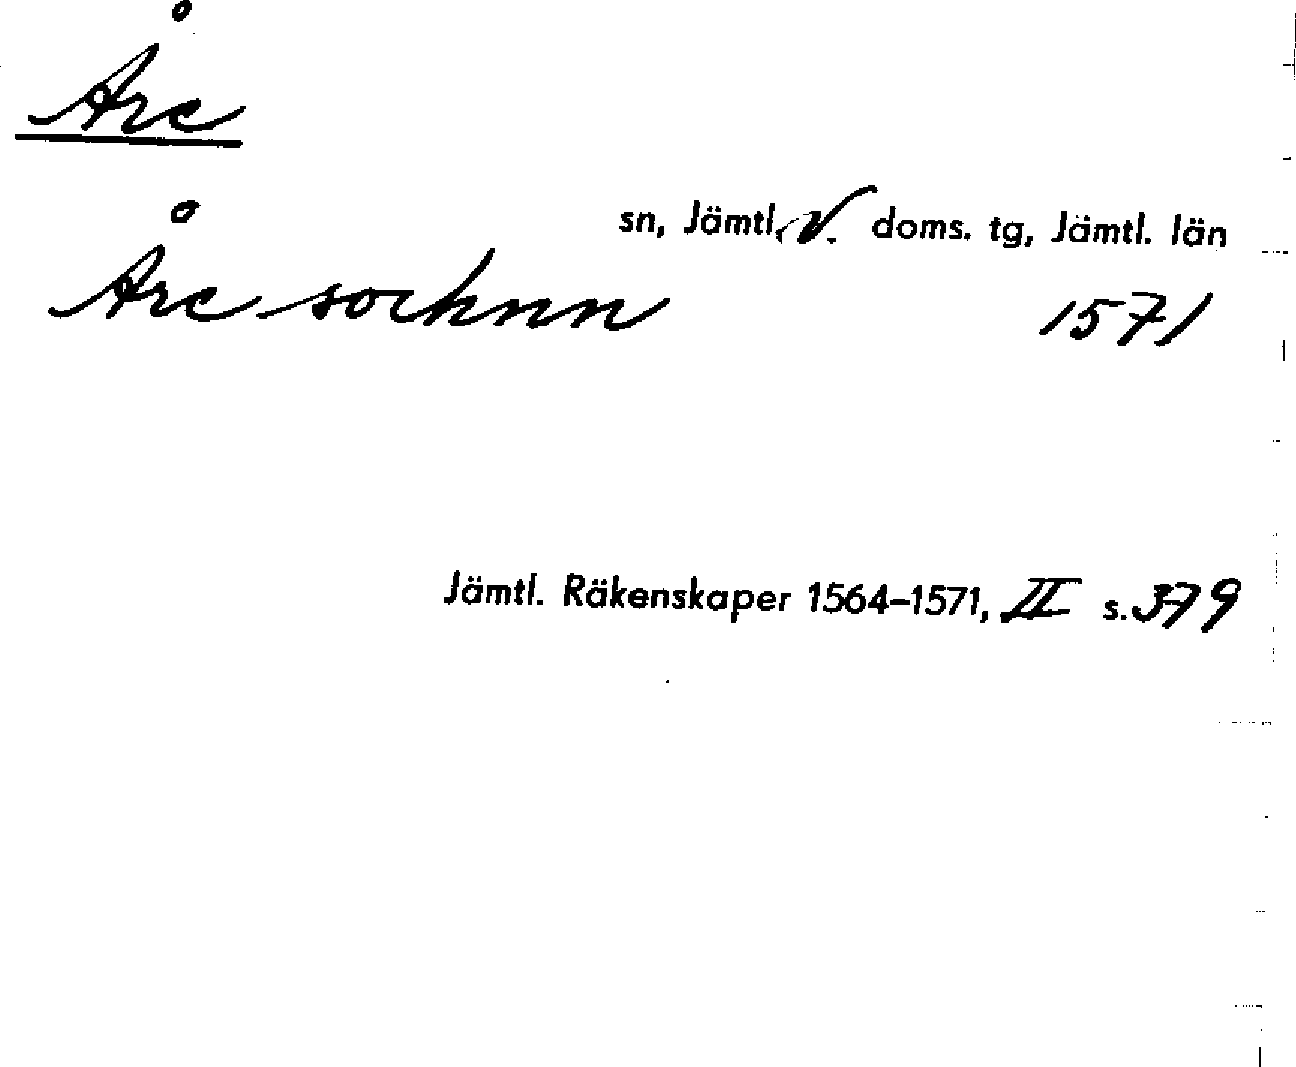 Åre
sn, Jämtl. V. doms. tg, Jämtl. län
Åre socknn 1571
Jämtl. Räkenskaper 1564–1571, II s. 379